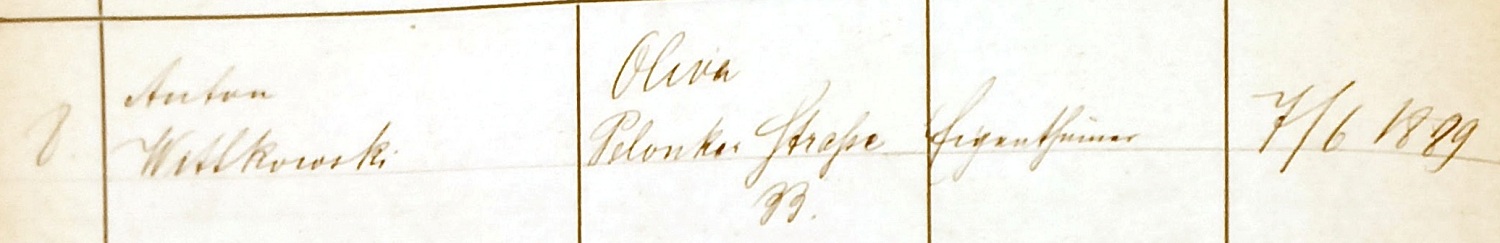 8.
Anton
Wittkowski
Oliva
Pelonker Straße
33.
Eigenthümer
7/6 1889